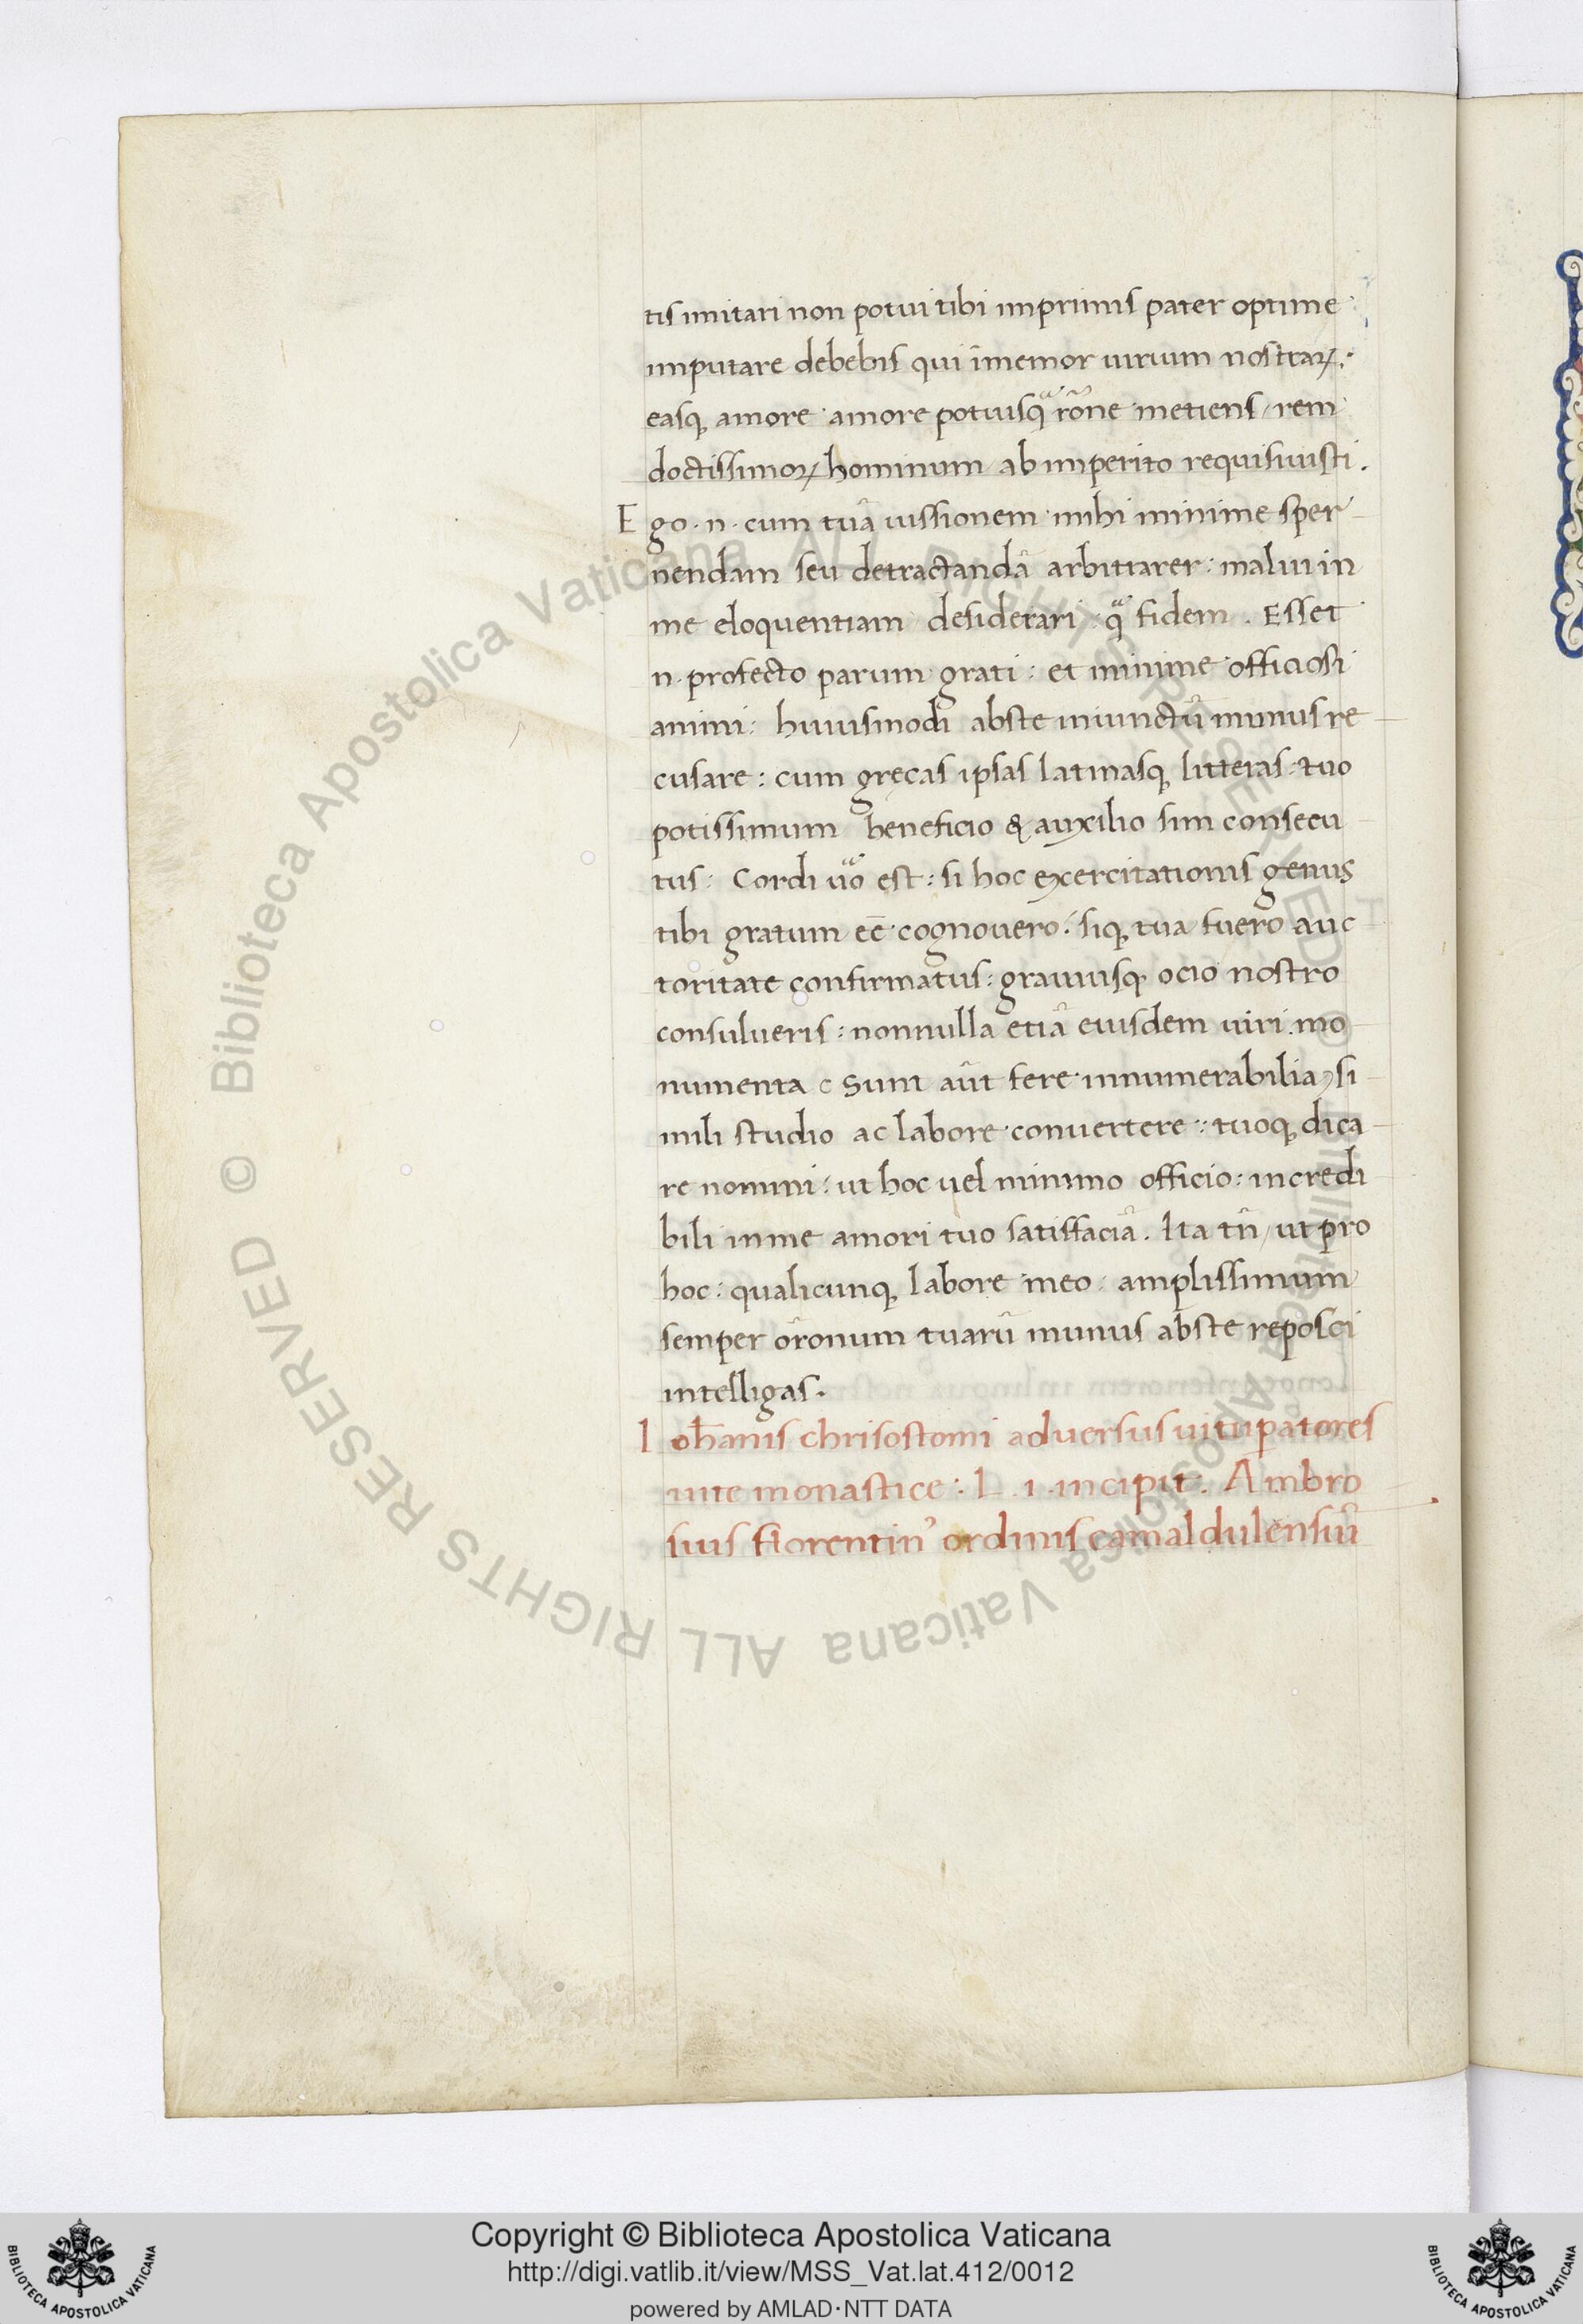 tis imitari non potui tibi imprimis pater optime
imputare debebis qui īmemor uirium nostraꝝ:
easq; amore amore potiusqᷓ rōne metiens / rem
doctissimoꝝ hominum ab imperito requisiuisti.
Ego .n. cum tuā iussionem mihi minime sper
nendam seu detractandā arbitrarer: malui in
me eloquentiam desiderari: qᷓ fidem. Esset
n. profecto parum grati: et minime officiosi
animi: huiusmodi abste iniunctū munus re
cusare: cum gręcas ipsas latinasq; litteras: tuo
potissimum beneficio & auxilio sim consecu
tus: Cordi uͦo est: si hoc exercitationis genus
tibi gratum eē cognouero: siq; tua fuero auc
toritate confirmatus: grauiusq; ocio nostro
consulueris: nonnulla etiā eiusdem uiri mo
numenta (Sunt aūt fere innumerabilia) si
mili studio ac labore conuertere: tuoq; dica
re nomini: ut hoc uel minimo officio: incredi
bili in me amori tuo satisfaciā. Ita tn̄ / ut pro
hoc: qualicunq; labore meo: amplissimum
semper ōronum tuarū munus abste reposci
intelligas.
Ioħanis chrisostomi aduersus uitupatores
uite monastice: L. i. incipit. Ambro
sius florentin᾽ ordinis camaldulensiū
Copyright © Biblioteca Apostolica Vaticana
http://digi.vatlib.it/view/MSS_Vat.lat.412/0012
powered by AMLAD·NTT DATA
BIBLIOTECA APOSTOLICA VATICANA
BIBLIOTECA APOSTOLICA VATICANA
© Biblioteca Apostolica Vaticana ALL RIGHTS RESERVED
© Biblioteca Apostolica Vaticana ALL RIGHTS RESERVED